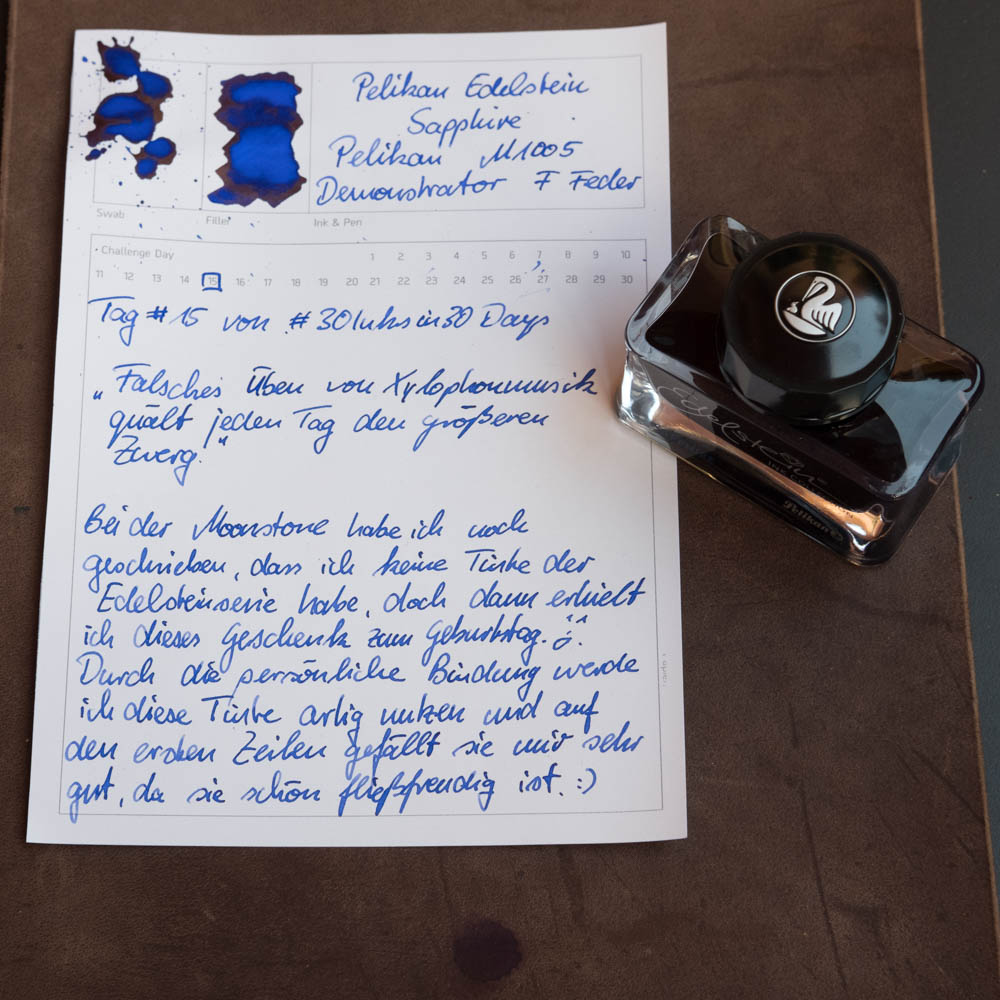 Pelikan Edelstein
Sapphire
Pelikan M1005
Demonstrator F Feder
Swab
Filler
Ink & Pen
Challenge Day
1 2 3 4 5 6 7 8 9 10
11 12 13 14 15 16 17 18 19 20 21 22 23 24 25 26 27 28 29 30
Tag #15 von #30Inksin30Days
„Falsches Üben von Xylophonmusik
quält jeden Tag den größeren
Zwerg."
Bei der Moonstone habe ich noch
geschrieben, dass ich keine Tinte der
Edelsteinserie habe, doch dann erhielt
ich dieses Geschenk zum Geburtstag.
Durch die persönliche Bindung werde
ich diese Tinte artig nutzen und auf
den ersten Zeilen gefällt sie mir sehr
gut, da sie schön fließfreudig ist. :)
Edelstein
Pelikan